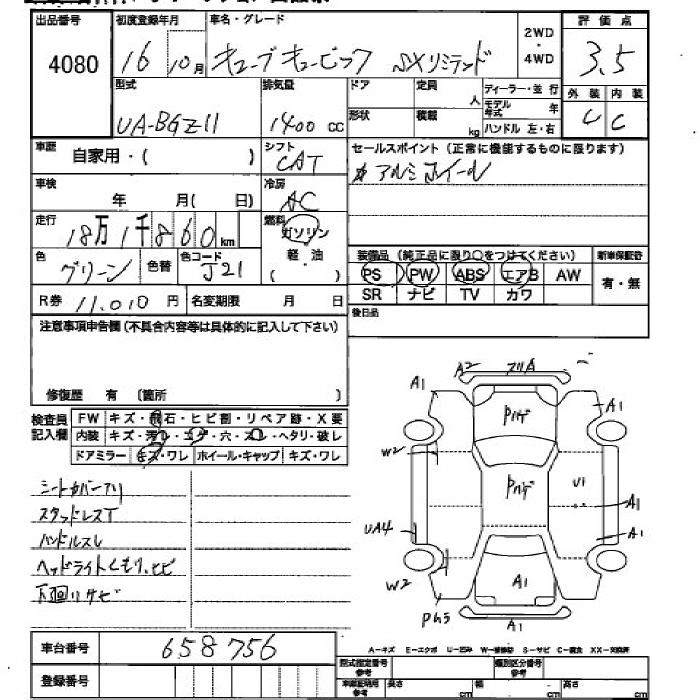 出品番号 初度登録年月 車名・グレード 2WD・4WD 評価点
4080 16 10月 キューブキュービック SXリミテッド 3.5
型式 排気量 ドア 定員 人 ディーラー・並行 外装 内装
形状 積載 kg モデル年式 年
UA-BGZ11 1400 CC ハンドル 左・右 C C
車歴 自家用・( ) シフト CAT セールスポイント(正常に機能するものに限ります)
アルミホイール
車検 年 月( 日) 冷房 AC
走行 18万1千860km 燃料 ガソリン 軽・油 ( )
装備品(純正品に限り○をつけてください) 新車保証書
色 グリーン 色替 色コード J21 PS PW ABS エアB AW 有・無
SR ナビ TV カワ
R券 11,010円 名変期限 月 日 後日品
注意事項申告欄(不具合内容等は具体的に記入して下さい)
修復歴 有 (箇所 )
検査員記入欄 FW キズ・飛石・ヒビ割・リペア跡・X要
内装 キズ・汚レ・コゲ・穴・スレ・ヘタリ・破レ
ドアミラー キズ・ワレ ホイール・キャップ キズ・ワレ
A2
A1
A1
Pハゲ
W2
Pハゲ
U1
A1
UA4
A1
W2
A1
A1
シートカバーアリ
スタッドレスT
ハンドルスレ
ヘッドライトくもり、ヒビ
下回りサビ
車台番号 658756
登録番号
A-キズ E-エクボ U-凹み W-補修跡 S-サビ C-腐食 XX-交換済
型式指定番号 参考 類別区分番号 参考
車庫証明用 参考 長さ cm 幅 cm 高さ cm